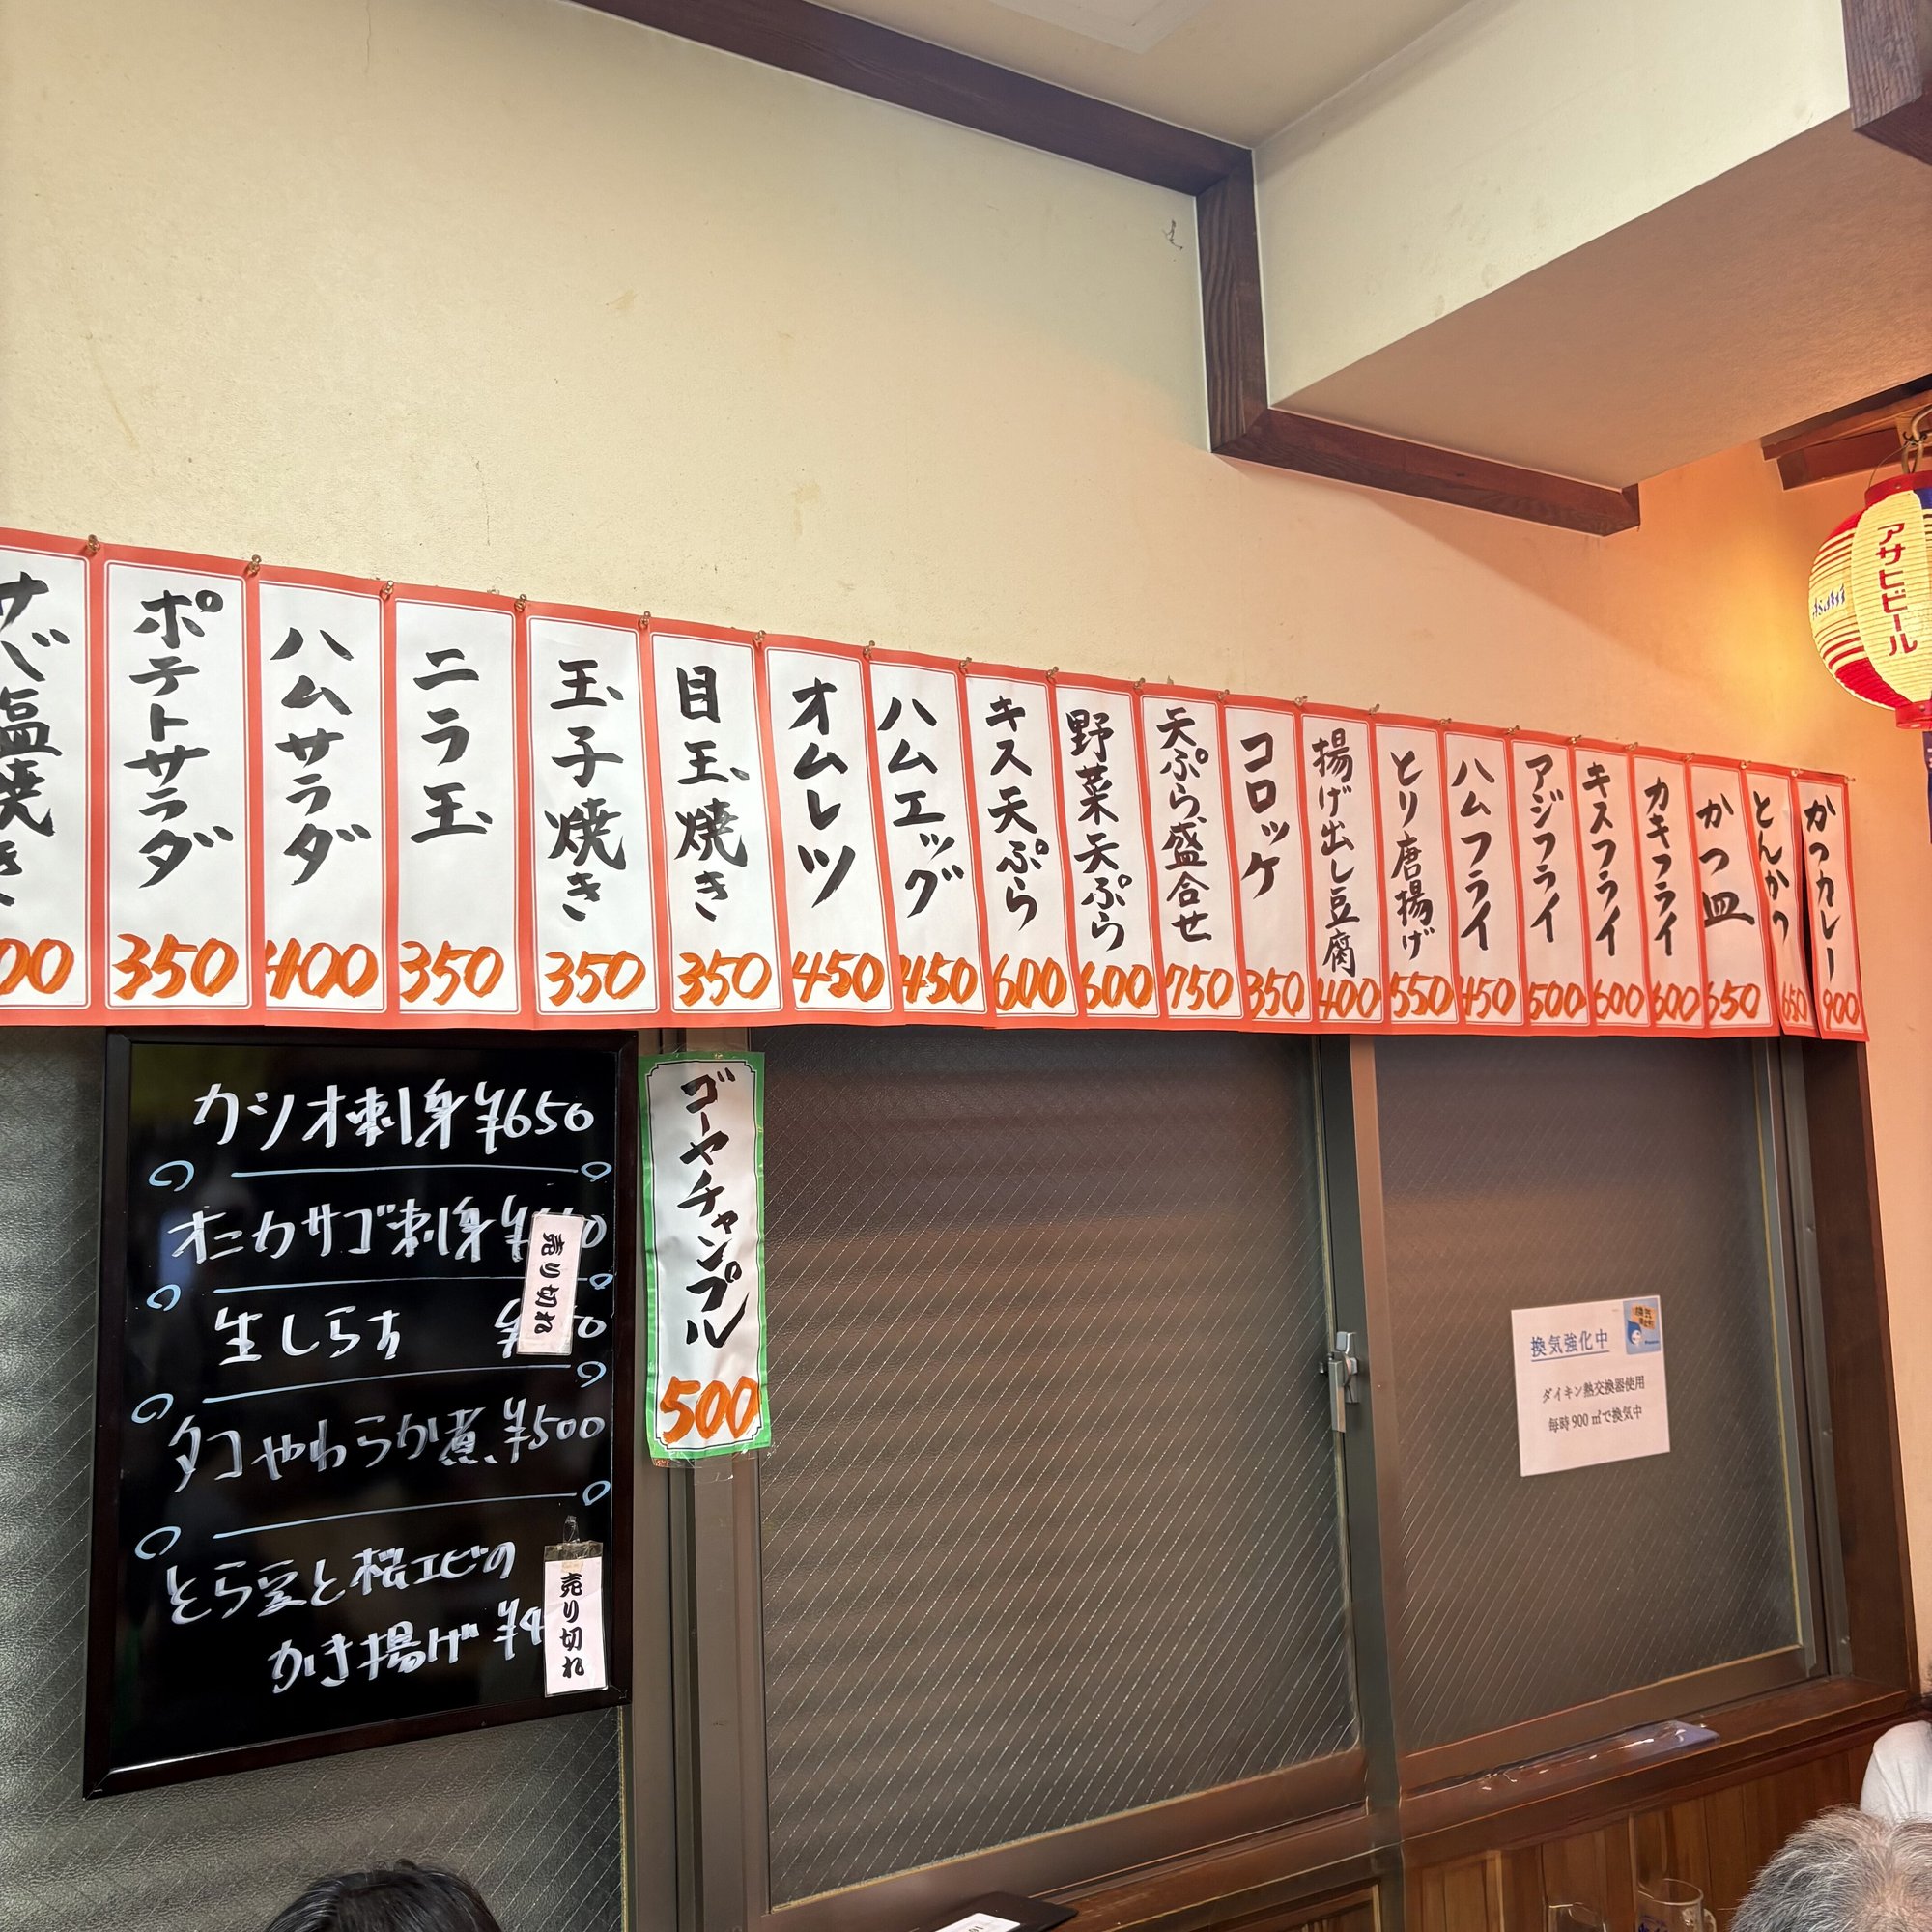 かつカレー
900
とんかつ
650
かつ皿
650
カキフライ
600
キスフライ
600
アジフライ
500
ハムフライ
450
とり唐揚げ
550
揚げ出し豆腐
400
コロッケ
350
天ぷら盛合せ
750
野菜天ぷら
600
キス天ぷら
600
ハムエッグ
450
オムレツ
450
目玉焼き
350
玉子焼き
350
ニラ玉
350
ハムサラダ
400
ポテトサラダ
350
サバ塩焼き
カツオ刺身 ¥650
オニカサゴ刺身
売り切れ
生しらす
タコやわらか煮 ¥500
とら豆と桜エビの
かき揚げ
売り切れ
ゴーヤチャンプル
500
換気強化中
ダイキン熱交換器使用
毎時900㎥で換気中
アサヒビール
Asahi